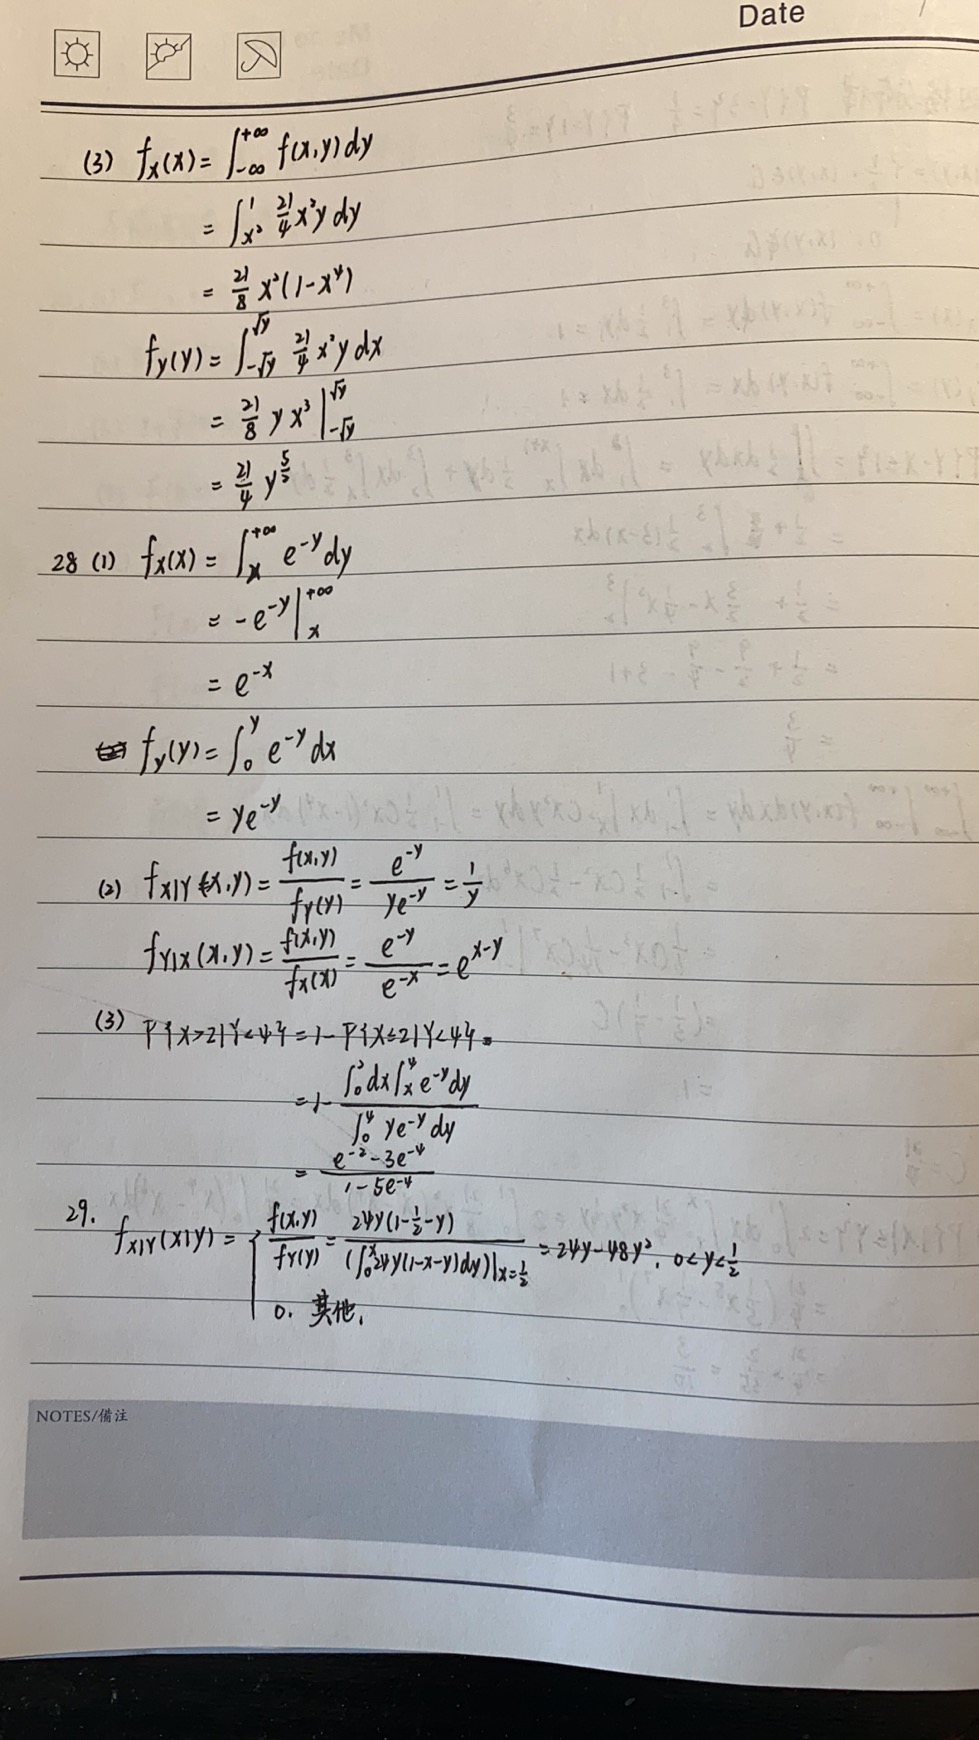 Date
(3) fx(x) = ∫_{-∞}^{+∞} f(x,y) dy
= ∫_{x²}^{1} 21/4 x²y dy
= 21/8 x²(1-x⁴)
fy(y) = ∫_{-√y}^{√y} 21/4 x²y dx
= 21/8 y x³ |_{-√y}^{√y}
= 21/4 y^{5/2}
28 (1) fx(x) = ∫_{x}^{+∞} e^{-y} dy
= -e^{-y} |_{x}^{+∞}
= e^{-x}
fy(y) = ∫_{0}^{y} e^{-y} dx
= ye^{-y}
(2) fX|Y (x,y) = f(x,y)/fY(y) = e^{-y}/ye^{-y} = 1/y
fY|X (x,y) = f(x,y)/fx(x) = e^{-y}/e^{-x} = e^{x-y}
(3) P{X>2|Y<4} = 1-P{X≤2|Y<4}
= 1- ∫_{0}^{2} dx ∫_{x}^{4} e^{-y} dy / ∫_{0}^{4} ye^{-y} dy
= e^{-2}-3e^{-4} / 1-5e^{-4}
29. fX|Y (x|y) = { f(x,y)/fY(y) = 24y(1-1/2-y) / (∫_{0}^{x} 24y(1-x-y)dy)|_{x=1/2} = 24y-48y², 0<y<1/2
0. 其他,
NOTES/備注